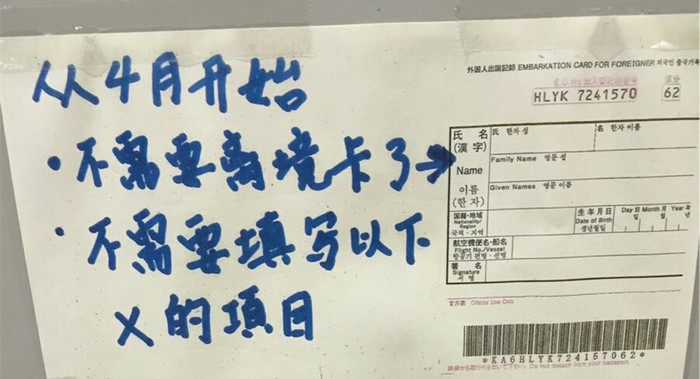 从4月开始
·不需要离境卡了→
·不需要填写以下
X的項目
外国人出国記録 EMBARKATION CARD FOR FOREIGNER 외국인 출국기록
HLYK 7241570 62
氏 名
(漢字)
Name
이름
(한자)
氏 한자 성
名 한자 이름
Family Name 영문 성
Given Names 영문 이름
国籍・地域
Nationality/
Region
국적・지역
生年月日
Date of Birth
생년월일
Day 日 일 Month 月 월 Year 年 년
航空機便名・船名
Flight No./Vessel
항공기 편명・선명
署 名
Signature
서 명
官用欄 Official Use Only
*KA6HLYK724157062*
Do not detach from your passport.